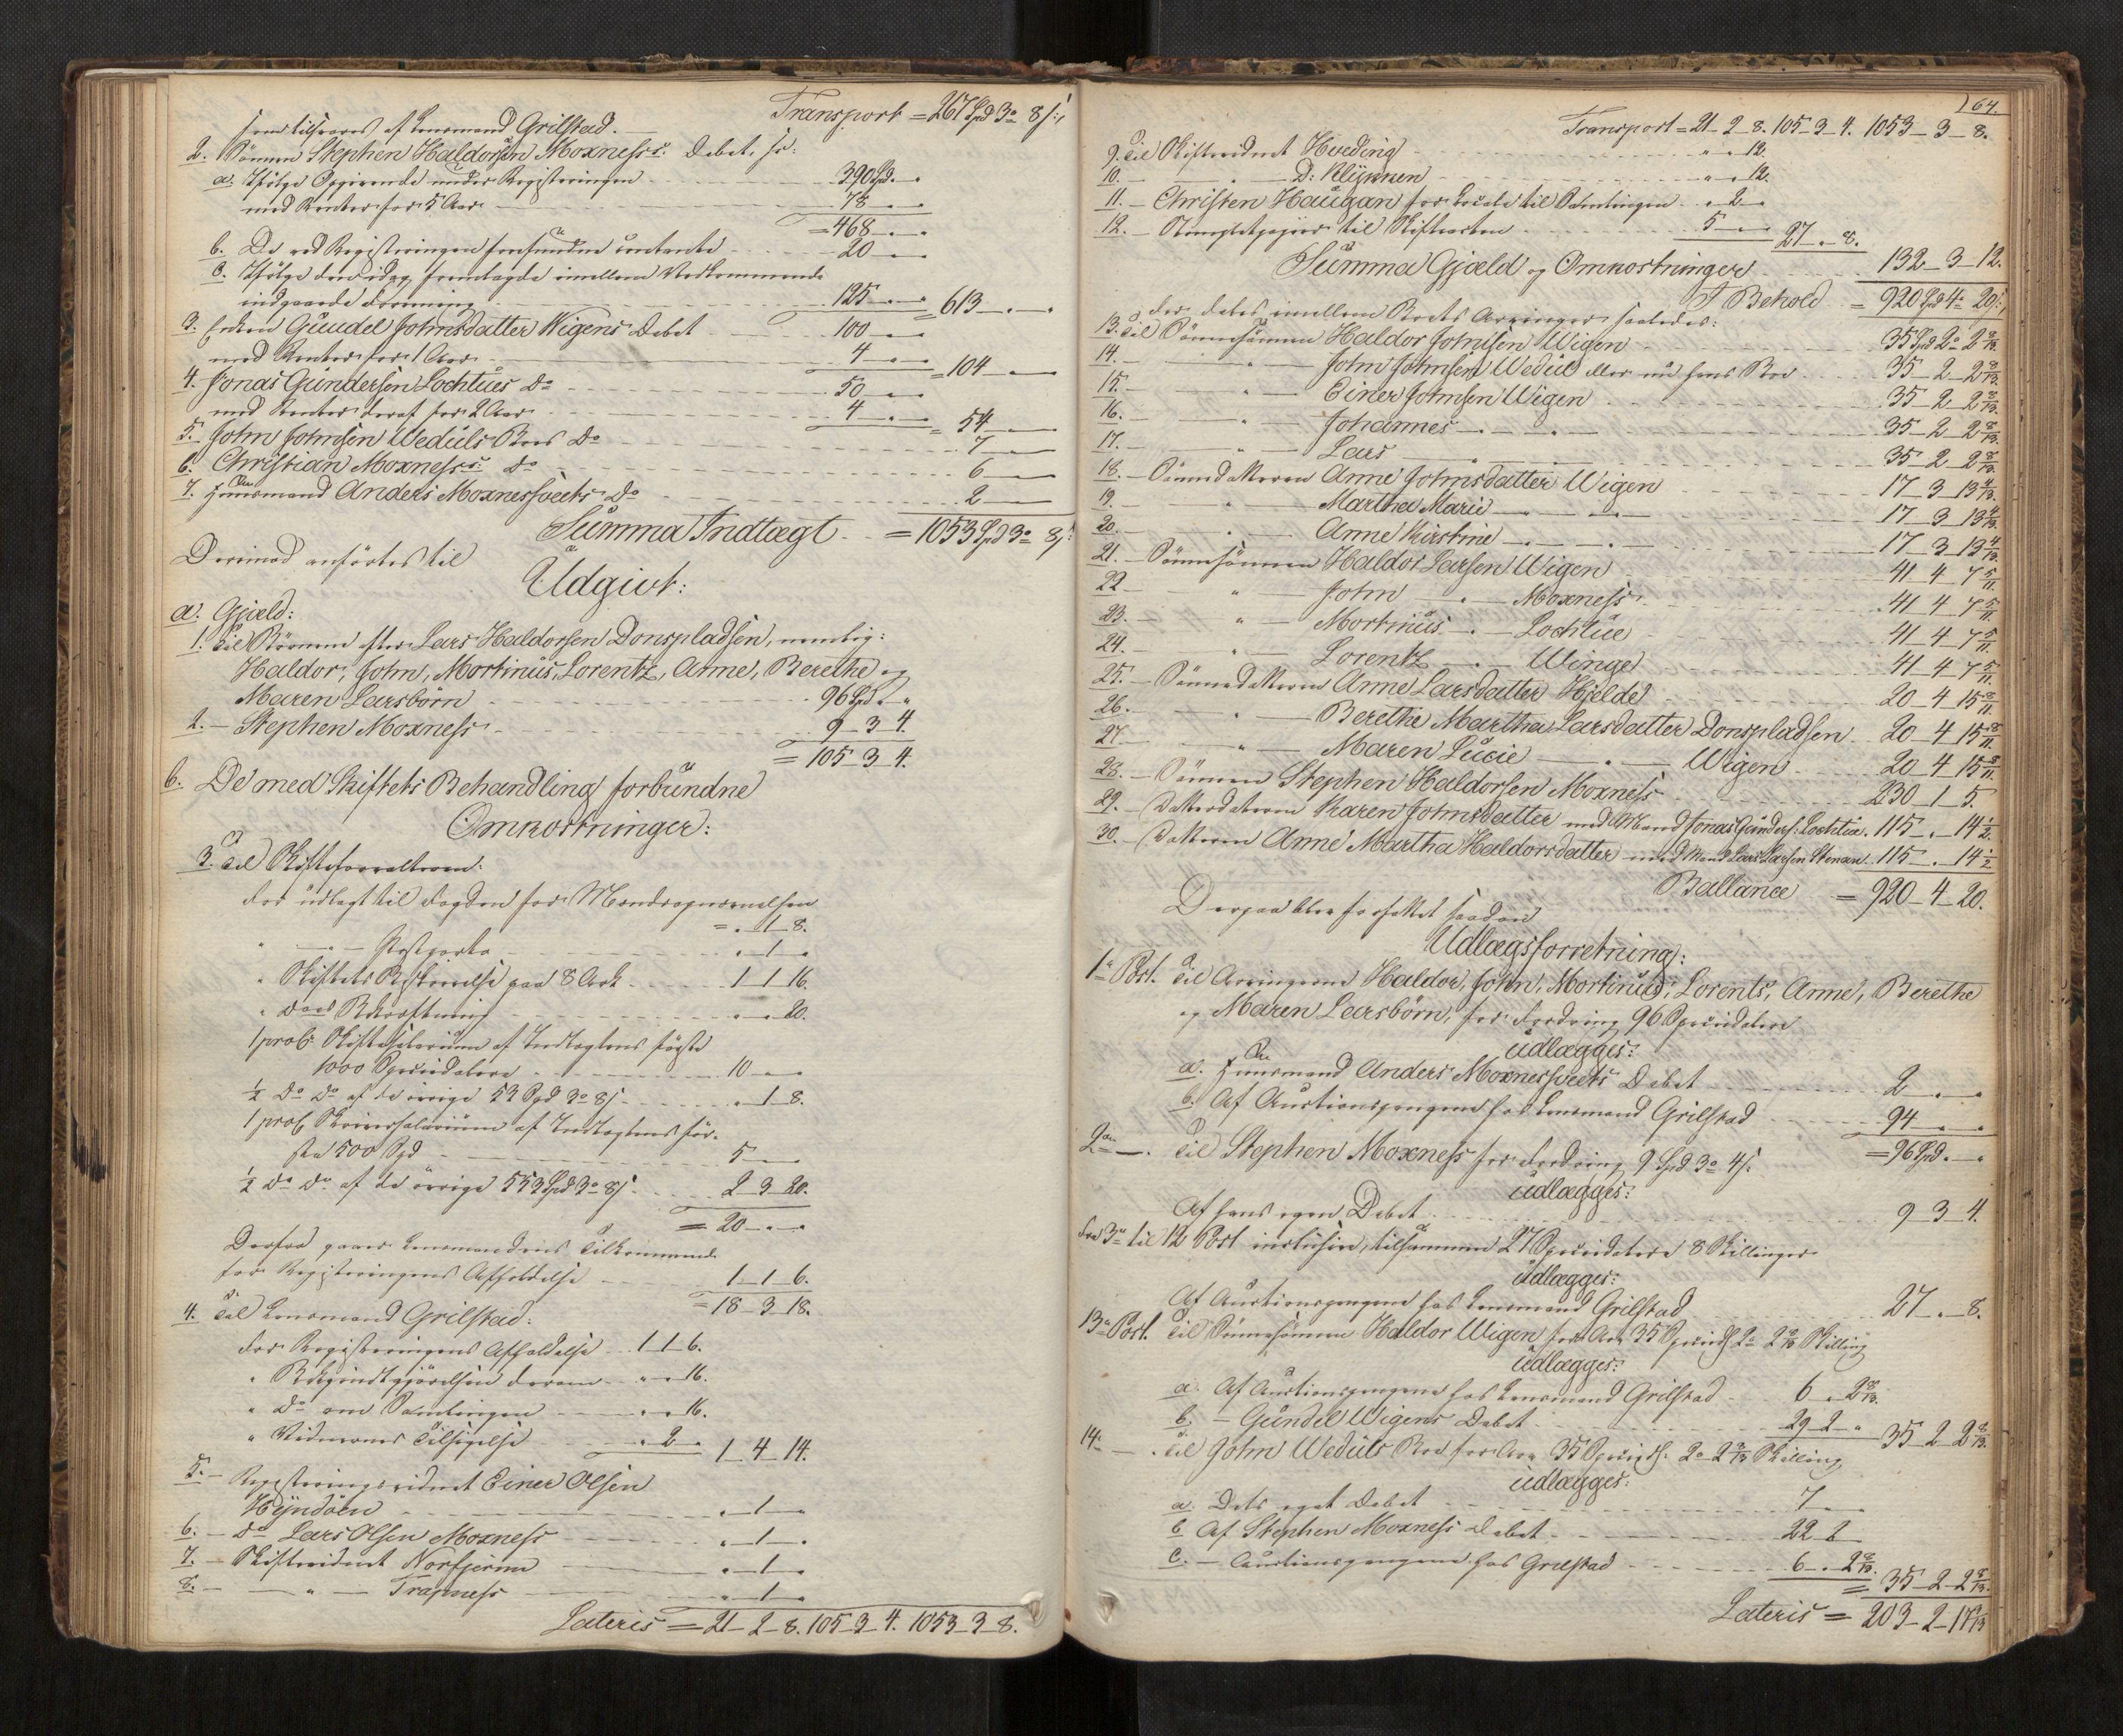 Transport = 267 Spd 3 o 8 s:
som tilsvares af Lensmand Grilstad.
2. Sönnen Stephen Haldorsen Moxness's Debet, so:
a. Ifølge Opgivende under Registeringen 390 Spd. „ „
med Renter for 5 Aar 78 „ „
= 468 „ „
b. De ved Registeringen forefundne contante 20 „ „
c. Ifølge den idag fremlagde imellem Vedkommende
indgaaede Forening 125 „ „ = 613 „ „
3. Enken Gundel Johnsdatter Wigens Debet 100 „ „
med Renter for 1 Aar 4 „ „ = 104 „ „
4. Jonas Gundersen Lochtues Do 50 „ „
med Renter deraf for 2 Aar 4 „ „ = 54 „ „
5. John Johnsen Weduls Boes Do 7 „ „
6. Christian Moxness's Do 6 „ „
7. Huusmand Anders Moxnessveets Do 2 „ „
Summa Indtægt = 1053 Spd 3 o 8 s:
Derimod anförtes til
Udgivt:
a. Gjæld:
1. Til Börnene efter Lars Haldorsen Donspladsen, nemlig:
Haldor, John, Mortinus, Lorentz, Anne, Berethe og
Maren Larsbörn 96 Spd. „ „
2. – Stephen Moxness 9 – 3 – 4.
= 105 – 3 – 4.
b. De med Skiftets Behandling forbundne
Omkostninger:
3. Til Skifteforvalteren:
For udlagt til Fogden for Mændsopnævnelsen = „ 1 – 8.
„ – „ – Postporto „ 1 „
„ Skiftets Beskrivelse paa 8 Ark 1 – 1 – 16.
„ dets Bekræftning „ „ 20.
1 proC. Skiftesalarium af Indtægtens første
1000 Speciedalere 10 „ „
½ Do Do af de övrige 53 Spd 3 o 8 s „ 1 – 8.
1 proC. Skriversalarium af Indtægtens för-
ste 500 Spd 5 „ „
½ Do Do af de övrige 553 Spd 3 o 8 s 2 – 3 – 20.
= 20 „ „
Derfra gaaer Lensmandens Tilkommende
for Registeringens Afholdelse 1 – 1 – 6.
= 18 – 3 – 18.
4. Til Lensmand Grilstad:
For Registeringens Afholdelse 1 – 1 – 6.
„ Bekjendtgjörelsen derom „ „ 16.
„ Do om Samlingen „ „ 16.
„ Vidnernes Tilsigelse „ 2 „ 1 – 4 – 14.
5. – Registeringsvidnet Einer Olsen
Hyndöen „ 1 „
6. – Do Lars Olsen Moxness „ 1 „
7. – Skiftevidnet Norfjerm „ 1 „
8. – – „ – Trapness „ 1 „
Lateris = 21 – 2 – 8. 105 – 3 – 4. 1053 – 3 – 8.
164.
Transport = 21 – 2 – 8. 105 – 3 – 4. 1053 – 3 – 8.
9. Til Skiftevidnet Hveding „ „ 12.
10. – „ – D: Klykken „ „ 12.
11. – Christen Haugan for Locale til Samlingen „ 2 „
12. – Stempletpapiir til Skifteacten 5 „ „ 27 „ 8.
Summa Gjæld og Omkostninger 132 – 3 – 12.
I Behold = 920 Spd 4 o 20 s
der deles imellem Boets Arvinger saaledes:
13. Til Sönnesönnen Haldor Johnsen Wigen 35 Spd 2 o 2 8/13.
14. – „ – John Johnsen Wedul eller nu hans Boe 35 – 2 – 2 8/13.
15. – „ – Einer Johnsen Wigen 35 – 2 – 2 8/13.
16. – „ – Johannes – „ – „ – 35 – 2 – 2 8/13.
17. – „ – Lars – „ – „ – 35 – 2 – 2 8/13.
18. – Sönnedatteren Anne Johnsdatter Wigen 17 – 3 – 13 4/13.
19. – „ – Martha Marie – „ – „ – 17 – 3 – 13 4/13.
20. – „ – Anne Kirstine – „ – „ – 17 – 3 – 13 4/13.
21. – Sönnesönnen Haldor Larsen Wigen 41 – 4 – 7 5/11.
22. – „ – John – „ – Moxness 41 – 4 – 7 5/11.
23. – „ – Mortinus – „ – Lochtue 41 – 4 – 7 5/11.
24. – „ – Lorentz – „ – Winge 41 – 4 – 7 5/11.
25. – Sönnedatteren Anne Larsdatter Hjelde 20 – 4 – 15 8/11.
26. – „ – Berethe Martha Larsdatter Donspladsen 20 – 4 – 15 8/11.
27. – „ – Maren Lucie – „ – Wigen 20 – 4 – 15 8/11.
28. – Sönnen Stephen Haldorsen Moxness 230 – 1 – 5.
29. – Datterdatteren Karen Johnsdatter med Mand Jonas Gunders: Lochtue 115 „ 14 ½
30. – Datteren Anne Martha Haldorsdatter med Mand Lars Larsen Stenan 115 „ 14 ½
Ballance = 920 – 4 – 20.
Derpaa blev forfattet saadan
Udlægsforretning:
1ste Post. Til Arvingerne Haldor, John, Mortinus, Lorents, Anne, Berethe
og Maren Larsbörn, for Fordring 96 Speciedalere
udlægges:
a. Huusmand Anders Moxnessveets Debet 2 „ „
b. Af Auctionspengene hos Lensmand Grilstad 94 „ „
= 96 Spd. „ „
2den –. Til Stephen Moxness for Fordring 9 Spd 3 o 4 s.
udlægges:
Af hans egen Debet 9 – 3 – 4.
Fra 3die til 12 Post inclusive, tilsammen 27 Speciedalere 8 Skillinger
udlægges:
Af Auctionspengene hos Lensmand Grilstad 27 „ 8.
13de Post. Til Sönnesönnen Haldor Wigen for Arv 35 Specieds 2 o 2 8/13 Skilling
udlægges:
a. Af Auctionspengene hos Lensmand Grilstad 6 „ 2 8/13.
b. – Gundel Wigens Debet 29 – 2 „ 35 – 2 – 2 8/13.
14. – . Til John Weduls Boe for Arv 35 Specieds. 2 o 2 8/13 Skilling
udlægges:
a. Dets eget Debet 7 „ „
b Af Stephen Moxness Debet 22 – 2 „
c. – Auctionspengene hos Grilstad 6 „ 2 8/13.
= 35 – 2 – 2 8/13.
Lateris = 203 – 2 – 17 3/13